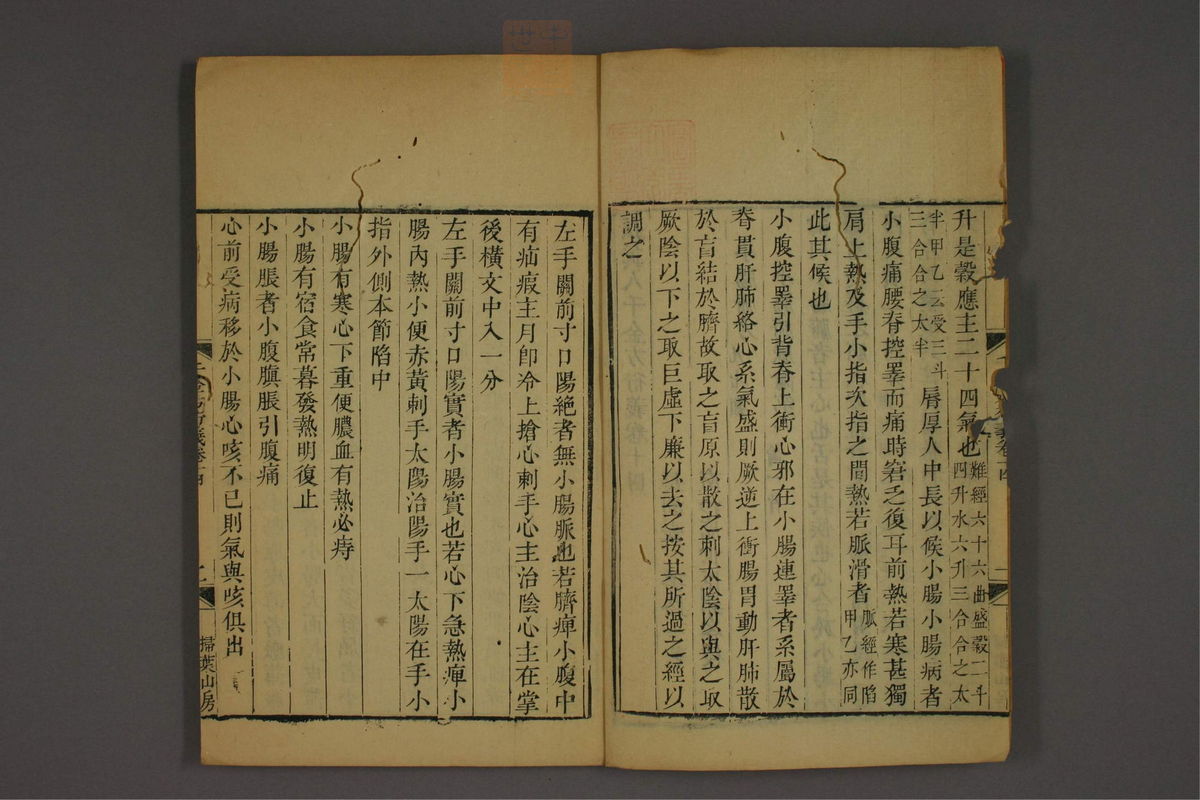 升是穀應主二十四氣也難經六十六曲盛穀二斗四升水六升三合合之太
半甲乙云受三斗三合合之太半唇厚人中長以候小腸小腸病者
小腹痛腰脊控睪而痛時窘之復耳前熱若寒甚獨
肩上熱及手小指次指之間熱若脈滑者脈經作陷甲乙亦同
此其候也
小腹控睪引背脊上衝心邪在小腸連睪者系屬於
脊貫肝肺絡心系氣盛則厥逆上衝腸胃動肝肺散
於盲結於臍故取之盲原以散之刺太陰以與之取
厥陰以下之取巨虛下廉以去之按其所過之經以
調之
左手關前寸口陽絕者無小腸脈也若臍痺小腹中
有疝瘕主月卽冷上搶心刺手心主治陰心主在掌
後橫文中入一分
左手關前寸口陽實者小腸實也若心下急熱痺小
腸內熱小便赤黃刺手太陽治陽手一太陽在手小
指外側本節陷中
小腸有寒心下重便膿血有熱必痔
小腸有宿食常暮發熱明復止
小腸脹者小腹䐜脹引腹痛
心前受病移於小腸心咳不已則氣與咳俱出
掃葉山房